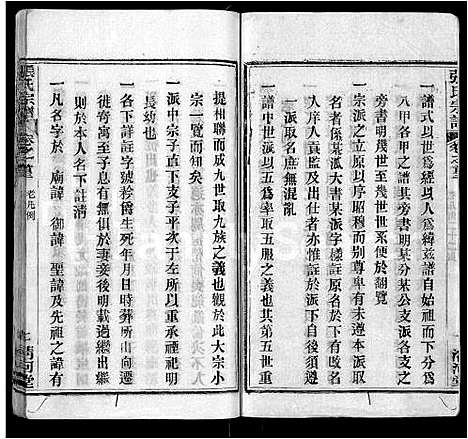 張氏宗譜
一譜式以世爲經以人爲緯蓋譜自始祖而下分爲
八甲各甲之譜其旁書明某分某公支派
旁書明幾世至幾世世系便於翻閱
一宗派之立原以序昭穆而別尊卑有未遵本派取
名者係某派大書某派字樣註原名於下有
人庠入貢監及出仕者亦惟註於派下以後須遵
一派取名庶無混亂
一譜中世派每以五世爲率取五服之義也其第五世重
提相聯而成九世取九族之義也觀於此大宗小
宗一覽而知矣
一派中宗子平次直下支子平次于左所以重承祧也明
長幼也
一各名下詳註字號矜爵生死年月日時葬所山向遷
徙何處寄寓至子息有無俱於妻妾後明載過繼出繼
則於本人名下註清
一凡名字於 廟諱 御諱 聖諱及先祖之諱有
張氏宗譜
老凡例
清河堂
清河堂